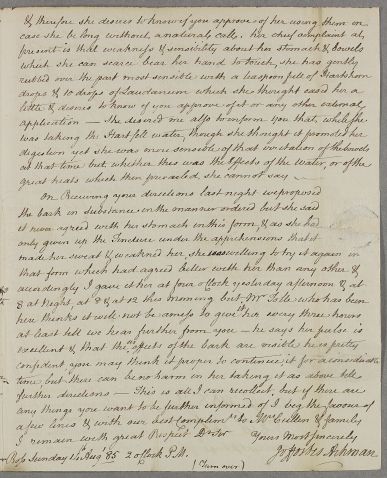 & therefore she desires to know if you approve of her using them in
case she be long without a natural call. her chief complaint at
present is that weakness & sensibility about her stomach & bowels
which she can scarce bear her hand to touch, she has gently
rubbed over the part most sensible with a teaspoon full of Hartshorn
drops & 10 drops of Laudanum which she thought eased her a
little & desires to know if you approve of it or any other external
application — She desired me also to inform you that, while she
was taking the Hartfell water, though she thought it promoted her
digestion yet she was more sensible of that irritation of the bowels
at that time but whether this was the Effects of the Water, or of the
great heats which then prevailed, she cannot say —
On Receiving your directions last night we proposed
the bark in substance in the manner ordered but she said
it never agreed with her stomach in this form, & as she had
only given up the Tincture under the apprehensions that it
made her sweat & weakened her, she was willing to try it again in
that form which had agreed better with her than any other &
accordingly I gave it her at four o'Clock yesterday afternoon & at
8 at Night, at 8 & at 12 this morning but Mr who has been
here thinks it will not be amiss to give it her every three hours
at least till we hear further from you — he says her pulse is
excellent & that the effects of the bark are visible he is pretty
confident you may think it proper to continue it for a considerable
time but there can be no harm in her taking it as above till
further directions — This is all I can recollect, but if there are
any things you want to be further informed of I beg the favour of
a few lines & with our best Complimts to Mrs Cullen & family
I remain with great Respect Dr Sir
Yours Most Sincerely
Jo Forbes Ackman
Ross Sunday 14 Augt 85 2 o'Clock P.M.
(Turn over)